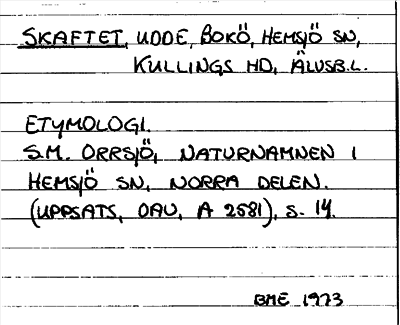 SKAFTET, UDDE, BOKÖ, HEMSJÖ SN,
KULLINGS HD, ÄLVSB.L.
ETYMOLOGI.
S.M. ORRSJÖ, NATURNAMNEN I
HEMSJÖ SN, NORRA DELEN.
(UPPSATS, OAU, A 2581), S. 14.
BME 1973